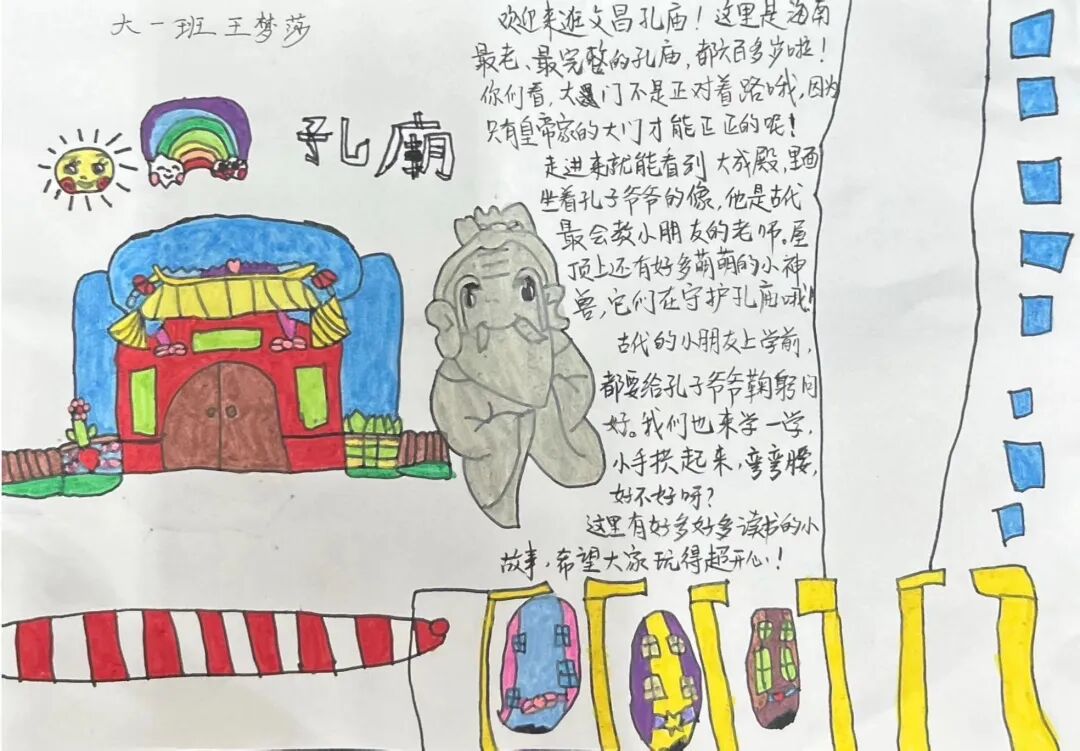 大一班王梦莎
孔庙
欢迎来逛文昌孔庙！这里是海南
最老、最完整的孔庙，都六百多岁啦！
你们看，大门不是正对着路哦，因为
只有皇帝家的大门才能正正的呢！
走进来就能看到大成殿，里面
坐着孔子爷爷的像，他是古代
最会教小朋友的老师。屋
顶上还有好多萌萌的小神
兽，它们在守护孔庙哦！
古代的小朋友上学前，
都要给孔子爷爷鞠躬问
好。我们也来学一学，
小手拱起来，弯弯腰，
好不好呀？
这里有好多好多读书的小
故事，希望大家玩得超开心！